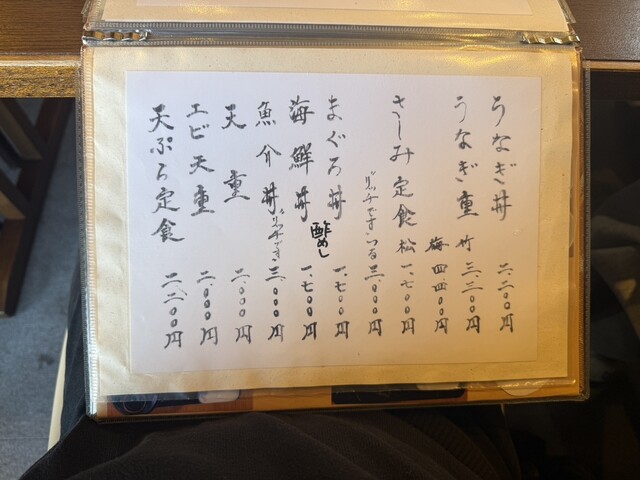 うなぎ丼 二、二〇〇円
うなぎ重 竹 三、三〇〇円
梅 四四〇〇円
さしみ定食 松 一、七〇〇円
リッチです 三、〇〇〇円
まぐろ丼 一、七〇〇円
海鮮丼 酢めし 一、七〇〇円
魚介丼 リッチです 三、〇〇〇円
天重 二、〇〇〇円
エビ天重 二、〇〇〇円
天ぷら定食 二、二〇〇円